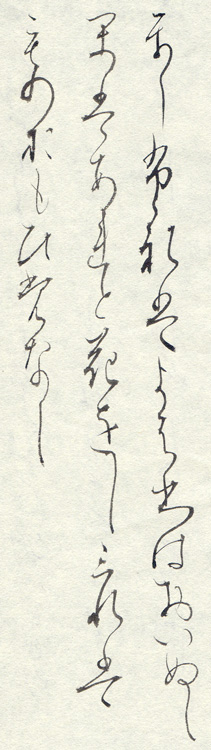 としふれはよはひはおいぬし
かはあれと花をしみれは
ものおもひもなし